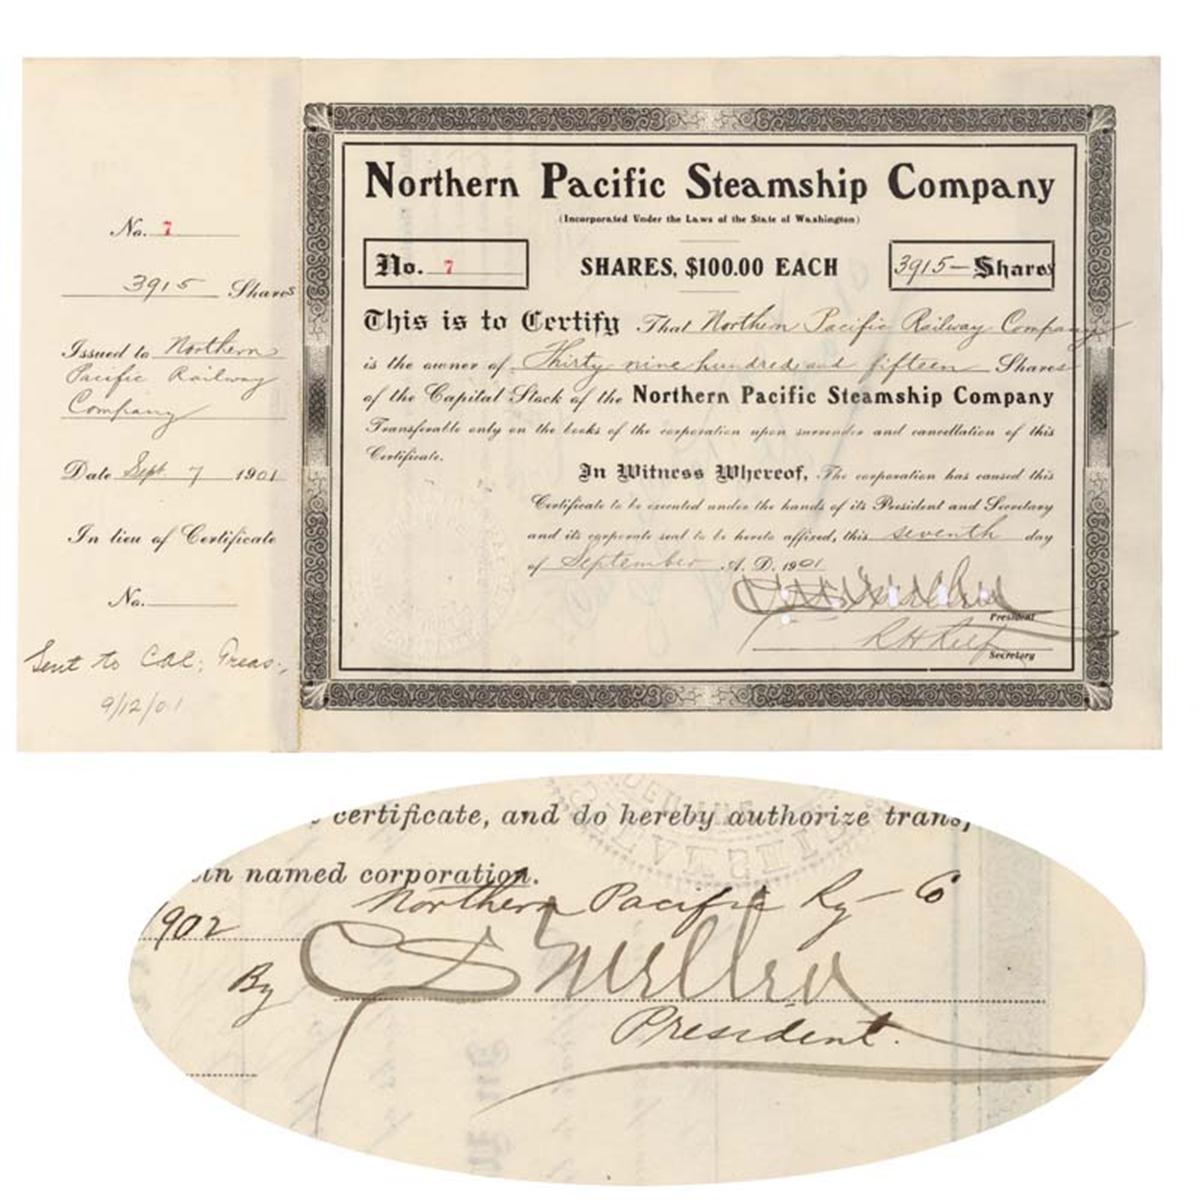 No. 7
3915 Shares
Issued to Northern
Pacific Railway
Company
Date Sept. 7 1901
In lieu of Certificate
No.
Sent to Treas.,
9/12/01
Northern Pacific Steamship Company
(Incorporated Under the Laws of the State of Washington)
No. 7
SHARES, $100.00 EACH
3915— Shares
This is to Certify That Northern Pacific Railway Company
is the owner of Thirty nine hundred and fifteen Shares
of the Capital Stock of the Northern Pacific Steamship Company
Transferable only on the books of the corporation upon surrender and cancellation of this
Certificate.
In Witness Whereof, The corporation has caused this
Certificate to be executed under the hands of its President and Secretary
and its corporate seal to be hereto affixed, this seventh day
of September A. D. 1901
President
Secretary
certificate, and do hereby authorize trans
in named corporation.
Northern Pacific Ry Co
1902
By CS Mellen
President.